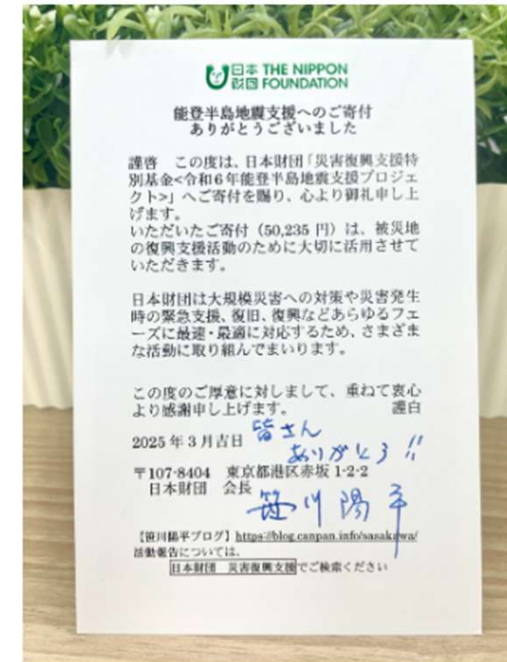 日本財団 THE NIPPON FOUNDATION
能登半島地震支援へのご寄付
ありがとうございました
謹啓　この度は、日本財団「災害復興支援特
別基金<令和６年能登半島地震支援プロジェ
クト>」へご寄付を賜り、心より御礼申し上
げます。
いただいたご寄付（50,235 円）は、被災地
の復興支援活動のために大切に活用させて
いただきます。
日本財団は大規模災害への対策や災害発生
時の緊急支援、復旧、復興などあらゆるフェ
ーズに最速・最適に対応するため、さまざま
な活動に取り組んでまいります。
この度のご厚意に対しまして、重ねて衷心
より感謝申し上げます。　謹白
皆さん
2025 年 3 月吉日
ありがとう!!
〒107-8404　東京都港区赤坂 1-2-2
日本財団　会長
笹川陽平
【笹川陽平ブログ】https://blog.canpan.info/sasakawa/
活動報告については、
日本財団　災害復興支援でご検索ください